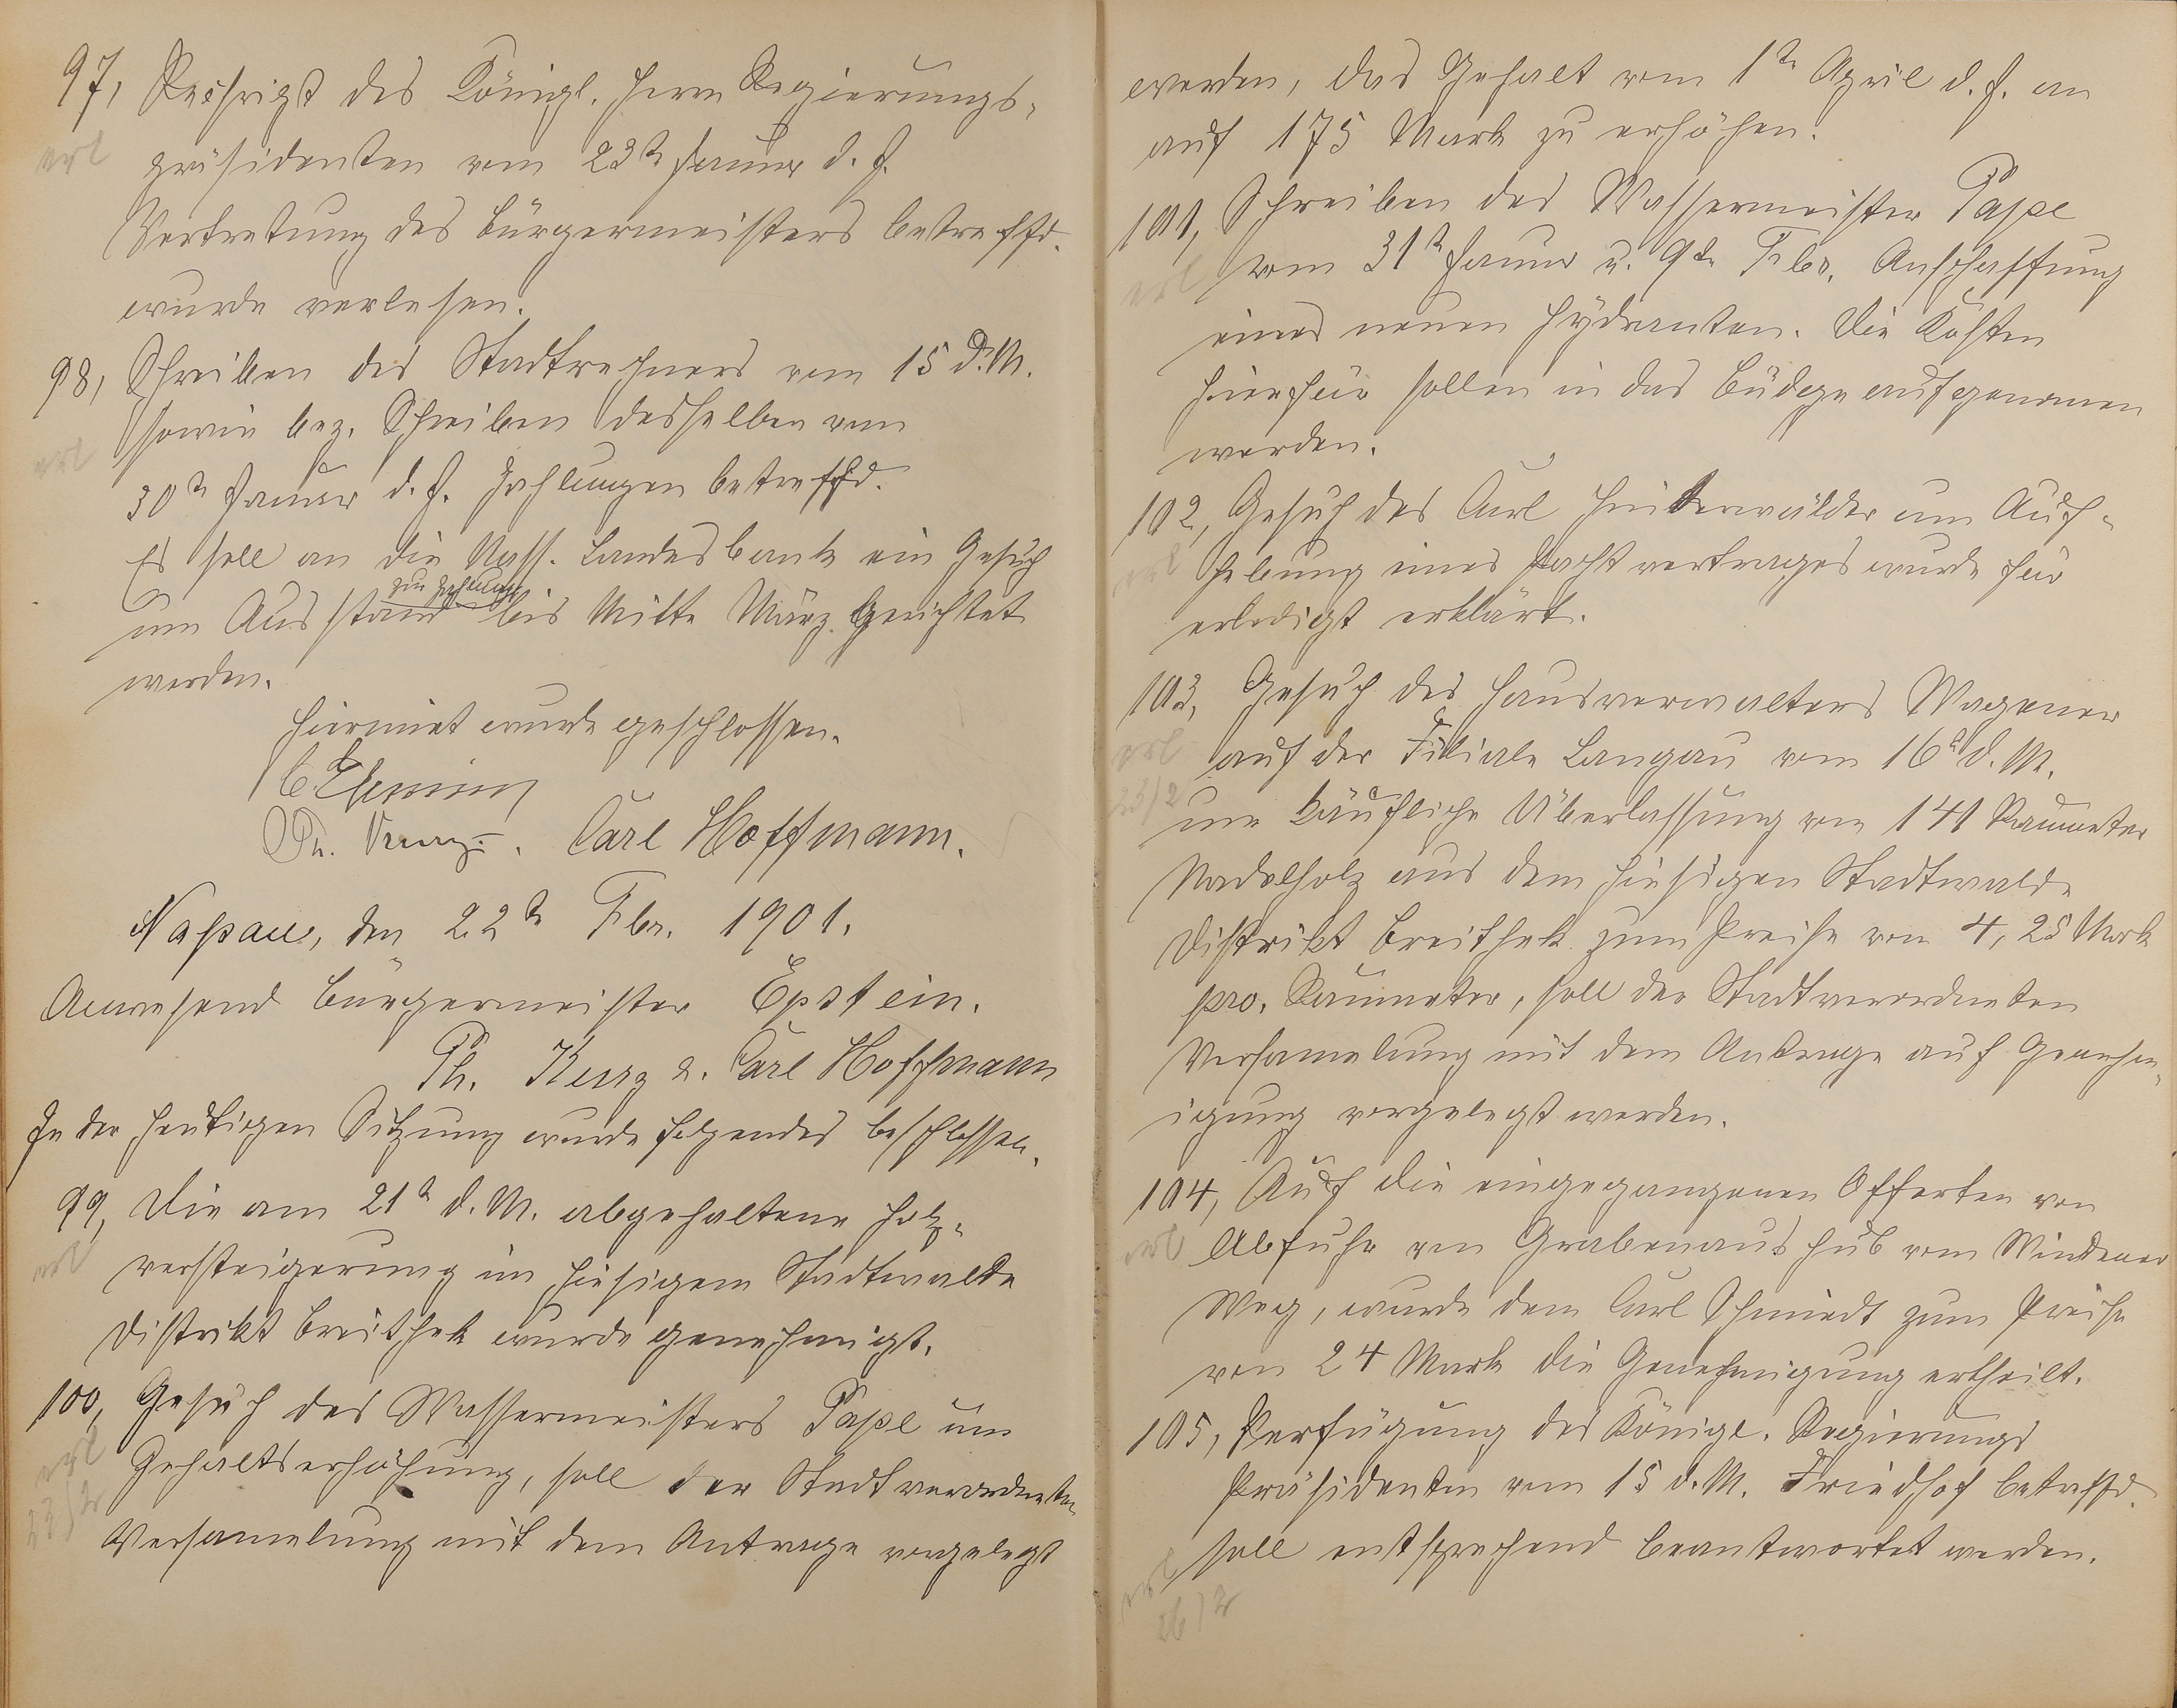 97, Reskript des Königl. Herrn Regierungs-
erl
präsidenten vom 23ten Januar d. J.
Vertretung des Bürgermeisters betreffd.
wurde verlesen.
98, Schreiben des Stadtrechners vom 15 d. M.
sowie bez. Schreiben desselben vom
erl
30ten Januar d. J. Zahlungen betreffd.
Es soll an die Nass. Landesbank ein Gesuch
zur Zahlung
um Ausstand bis Mitte März gerichtet
werden.
Hiermit wurde geschlossen.
Ph. Kurz. Carl Hoffmann.
Naßau, den 22ten Febr. 1901.
Anwesend Bürgermeister Epstein.
Ph. Kurz u. Carl Hoffmann
In der heutigen Sitzung wurde folgendes beschlossen.
99, Die am 21ten d. M. abgehaltene Holz-
erl
versteigerung im hiesigem Stadtwalde
Distrikt Breitheck wurde genehmigt.
100, Gesuch des Wassermeisters Pape um
erl
Gehaltserhöhung, soll der Stadtverordneten
22/2
Versamelung mit dem Antrage vorgelegt
werden, das Gehalt vom 1ten April d. J. an
auf 175 Mark zu erhöhen.
101, Schreiben des Wassermeister Pape
erl
vom 31ten Januar u. 9ten Febr. Anschaffung
eines neuen Hydranten. Die Kosten
hierfür sollen in das Büdge aufgenomen
werden.
102, Gesuch des Carl Hinterwälder um Auf-
erl
hebung eines Pachtvertrages wurde für
erledigt erklärt.
103, Gesuch des Hausverwalters Wagener
erl
auf der Filiale Langau vom 16ten d. M.
23/2
um käufliche Überlassung von 141 Raumeter
Nadelholz aus dem hiesigen Stadtwalde
Distrikt Breitheck zum Preise von 4,25 Mark
pro. Raumeter, soll der Stadtverordneten
Versamelung mit dem Antrage auf Genehm-
igung vorgelegt werden.
104, Auf die eingegangenen Offerten von
erl
Abfuhr von Grabenaushub vom Windener
Weg, wurde dem Carl Schmidt zum Preise
von 24 Mark die Genehmigung ertheilt.
105, Verfügung des Königl. Regierungs
Präsidenten vom 15 d. M. Friedhof betreffd.
soll entsprechend beantwortet werden.
erl
26/2